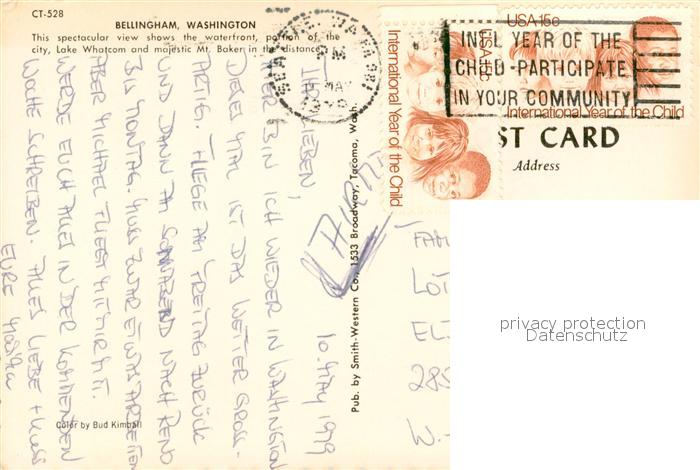 CT-528
BELLINGHAM, WASHINGTON
This spectacular view shows the waterfront, portion of the
city, Lake Whatcom and majestic Mt. Baker in the distance.
PM
MAY
1979
INTL YEAR OF THE
CHILD - PARTICIPATE
IN YOUR COMMUNITY
USA 15c
International Year of the Child
USA 15c
International Year of the Child
POST CARD
Address
AIRMAIL
10. MAY 1979
IHR LIEBEN,
HIER BIN ICH WIEDER IN WASHINGTON
DIESES MAL IST DAS WETTER GROSS-
ARTIG. FLIEGE AM FREITAG ZURÜCK
UND DANN AM SONNABEND NACH RENO
BIS MONTAG. MUSS ZWAR ETWAS ARBEITEN
ABER MICHAEL FLIEGT MIT MIR MIT.
WERDE EUCH ALLES IN DER KOMMENDEN
WOCHE SCHREIBEN. ALLES LIEBE + KUSS
EURE
Pub. by Smith-Western Co., 1533 Broadway, Tacoma, Wash.
Color by Bud Kimball
FAM
LOT
EL
285
W.-
privacy protection
Datenschutz